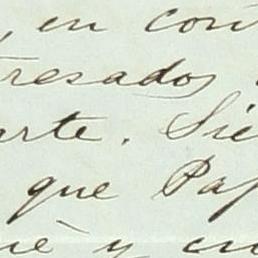 , en con
tresados
arte. Sie
que Pap
è y cu